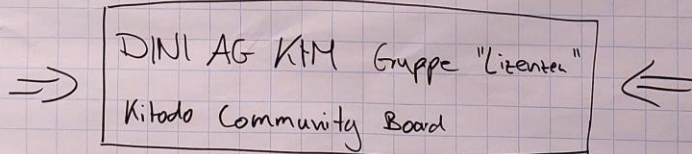 DINI AG KIM Gruppe "Lizenzen"
Kitodo Community Board